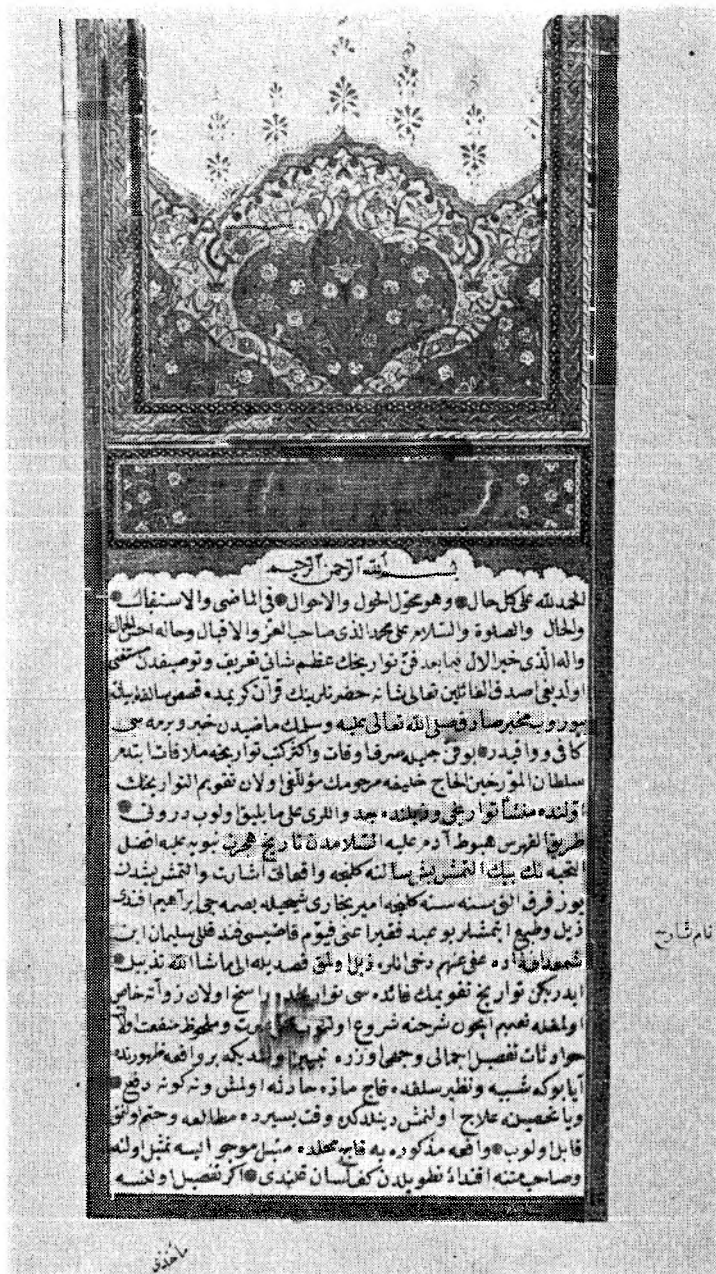 بسم الله الرحمن الرحيم
الحمد لله على كل حال وهو محول الحول والاحوال فى الماضى والاستقبال
والحال والصلوة والسلام على محمد الذى صاحب العز والاقبال وحاله احسن الحال
واله الذى خير الال فيما بعد فن تواريخك عظم شانى تعريف وتوصيفدن مستغنى
اولديغى اصدق القائلين تعالى شانه حضرتلرينك قرآن كريمده قصص سالفه بيانه
بيوروب مخبر صادق صلى الله تعالى عليه وسلمك ماضيدن خبر ويرمه سى
كافى ووافيدر بوفن جميله صرف اوقات واكثر كتب تواريخه ملاقات ايتدم
سلطان المورخين الحاج خليفه مرحومك مؤلفى اولان تقويم التواريخك
اولنده منشأ تواريخى وذيلنده جد واللرى على ما يليق اولوب درونى
طريق الفهرس هبوط آدم عليه السلامدن تاريخ هجرت نبويه عليه افضل
التحيه نك بيك التمش يدى سالنه كلنجه وقعاتى اشارت والتمش يديدن
يوز قرق التى سنه سنه كلنجه امير بخارى شيخيله بصمه جى ابراهيم افندى
ذيل وضع ايتمشلر بو عبد فقير اعنى قيوم قاضيسى فندقلى سليمان ابن
عفى عنهم دخى انلره ذيل اولمق قصديله الى ماشا الله تذييل
ايدركن تواريخ تقويمك فائده سى تواريخده راسخ اولان ذواته خاص
اولمغله تعميم ايچون شرحنه شروع اولنوب محل عبرت وملحوظ منفعت اولان
حوادثات تفصيل اجمالى وجهى اوزره تبيين اولنديكه بر واقعه ظهورنده
آيا بوكه شبيه ونظير سلفده قاچ ماده حادثه اولمش ونه كونه دفع
ويا تحصينه علاج اولنمش دينلدكن وقت يسيرده مطالعه وحتم اولنمق
قابل اولوب واقعه مذكوره يه قاچ محلده مثبل موجو ايسه تمثيل اولنه
وصاحب متنه اقتداءً تطويلدن كف لسان قلندى اكر تفصيل اولنسه
نام شارح
مأخذى